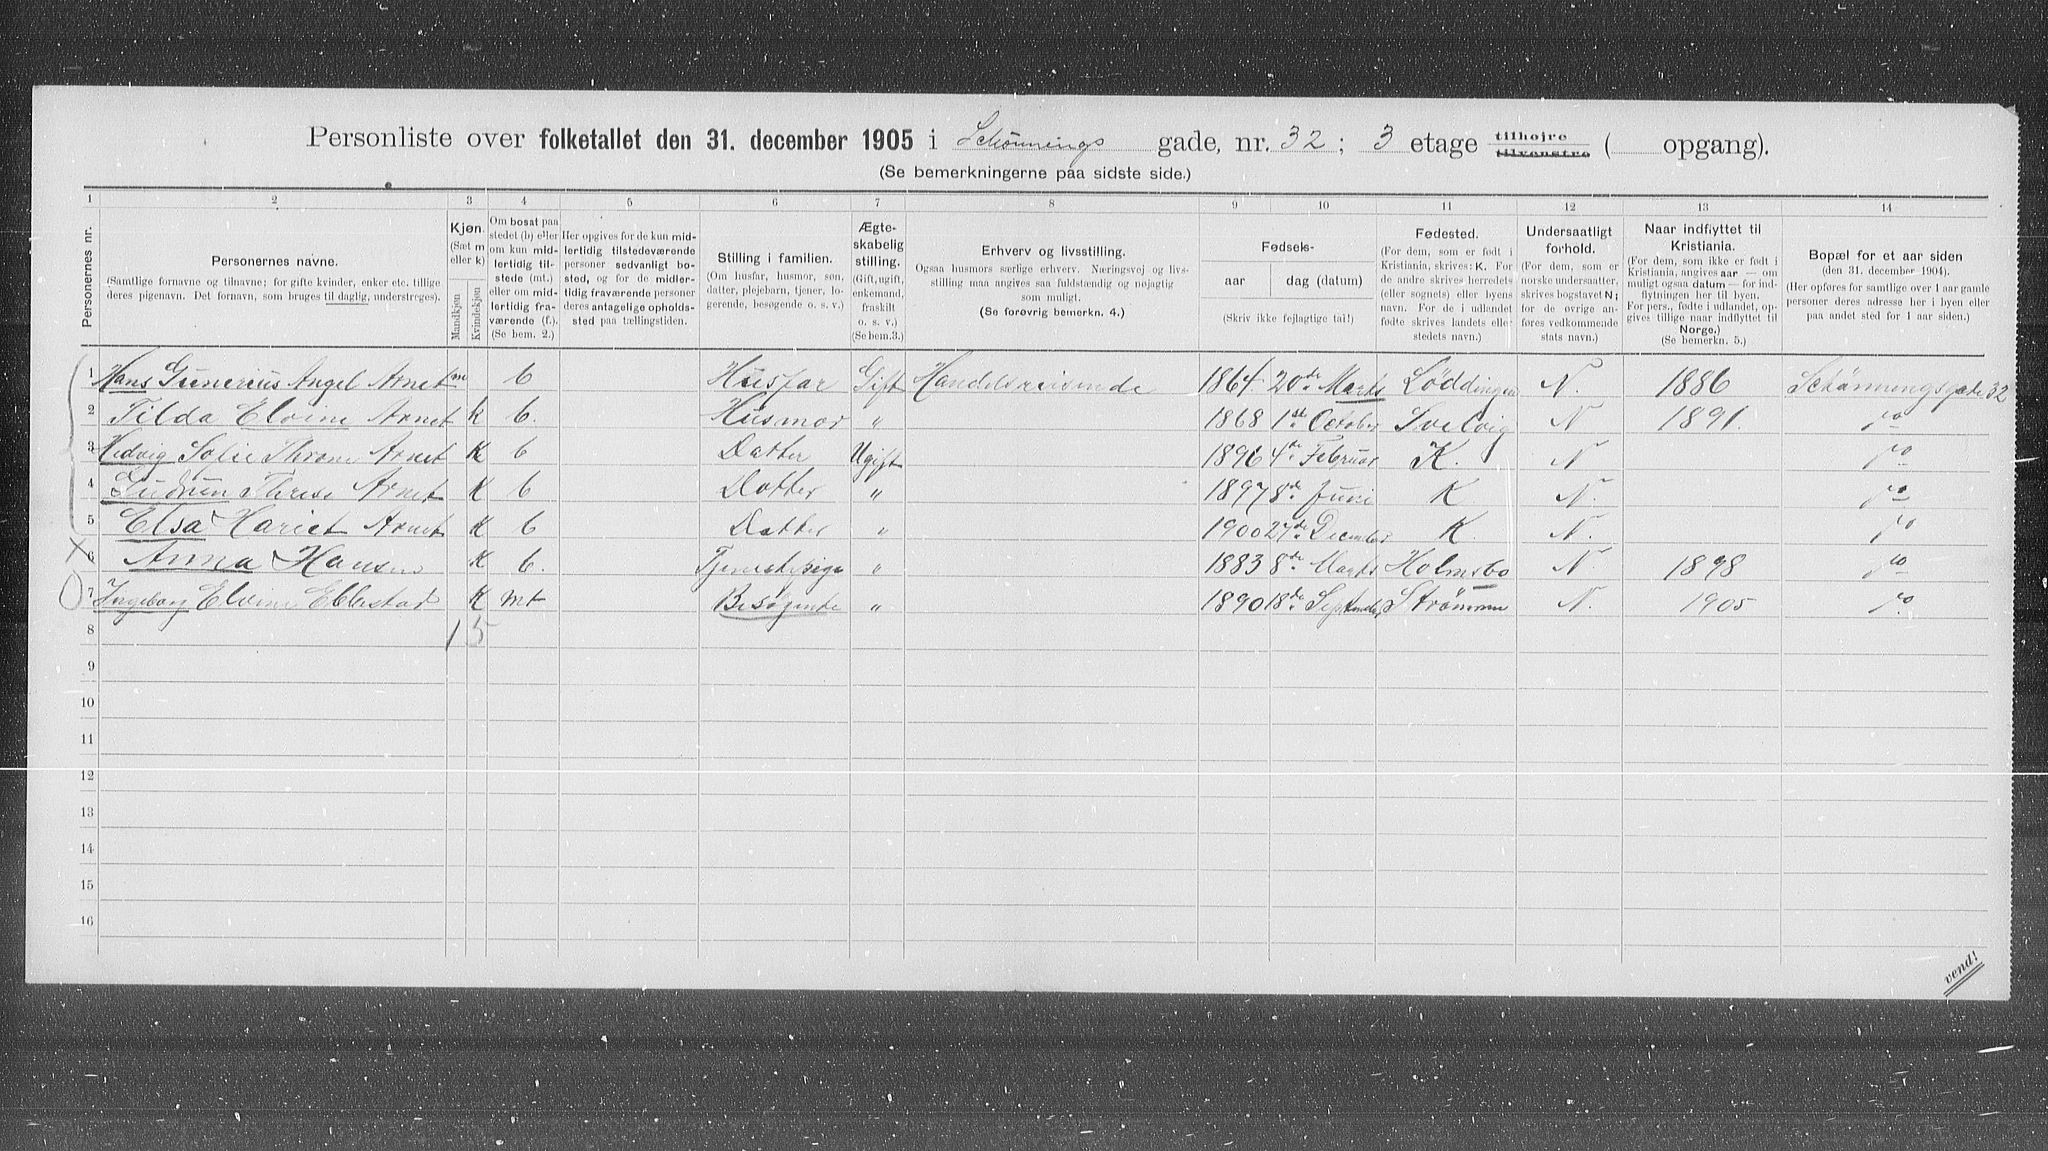 Personliste over folketallet den 31. december 1905 i Schönnings gade, nr. 32; 3 etage tilhøjre tilvenstre ( opgang).
(Se bemerkningerne paa sidste side.)
1 2 3 4 5 6 7 8 9 10 11 12 13 14
Personernes nr.
Personernes navne.
(Samtlige fornavne og tilnavne; for gifte kvinder, enker etc. tillige deres pigenavn. Det fornavn, som bruges til daglig, understreges).
Kjøn.
(Sæt m eller k)
Mandkjøn Kvindekjøn
Om bosat paa stedet (b) eller om kun midlertidig tilstede (mt.) eller om midlertidig fraværende (f.). (Se bem. 2.)
Her opgives for de kun midlertidig tilstedeværende personer sedvanligt bosted, og for de midlertidig fraværende personer deres antagelige opholdssted paa tællingstiden.
Stilling i familien.
(Om husfar, husmor, søn, datter, plejebarn, tjener, logerende, besøgende o. s. v.)
Ægteskabelig stilling.
(Gift, ugift, enkemand, fraskilt o. s. v.)
(Se bem.3.)
Erhverv og livsstilling.
Ogsaa husmors særlige erhverv. Næringsvej og livsstilling maa angives saa fuldstændig og nøjagtig som muligt.
(Se forøvrig bemerkn. 4.)
Fødsels-
aar dag (datum)
(Skriv ikke fejlagtige tal!)
Fødested.
(For dem, som er født i Kristiania, skrives: K. For de andre skrives herredets (eller sognets) eller byens navn. For de i udlandet fødte skrives landets eller stedets navn.)
Undersaatligt forhold.
(For dem, som er norske undersaatter, skrives bogstavet N; for de øvrige anføres vedkommende stats navn.)
Naar indflyttet til Kristiania.
(For dem, som ikke er født i Kristiania, angives aar — om muligt ogsaa datum — for indflytningen her til byen. For pers., fødte i udlandet, opgives tillige naar indflyttet til Norge.)
(Se bemerkn. 5.)
Bopæl for et aar siden
(den 31. december 1904).
(Her opføres for samtlige over 1 aar gamle personer deres adresse her i byen eller paa andet sted for 1 aar siden.)
1 Hans Gunerius Angel Arnet m b Husfar Gift Handelsreisende 1864 20de Marts Löddingen N. 1886 Schönningsgade 32
2 Tilda Elvine Arnet k b. Husmor " 1868 1ste October Svelvig N 1891. do
3 Hedvig Sofie Throne Arnet K b Datter Ugift 1896 4de Februar K. N do
4 Gudrun Therese Arnet K b Datter " 1897 8de Juni K. N. do
5 Elsa Hariet Arnet K b Datter " 1900 27de December K. N. do
6 Anna Hansen K b. Tjenestepige " 1883 8de Marts Holmsbo N. 1898 do
7 Ingeborg Elvine Ebbestad K mt Besøgende " 1890 18de September Strömmen N. 1905 do
8 1 5
9
10
11
12
13
14
15
16
vend!